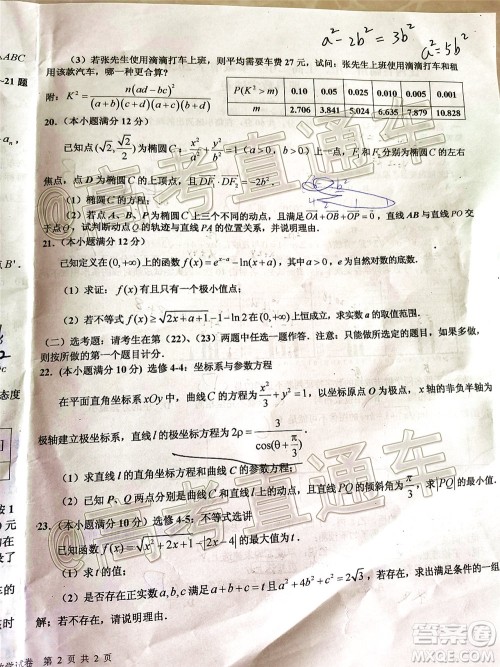 a²-2b²=3b²
a²=5b²
ABC
(3) 若张先生使用滴滴打车上班，则平均需要车费 27 元，试问：张先生上班使用滴滴打车和租
~21 题
用该款汽车，哪一种更合算？
附：K²=n(ad−bc)²/((a+b)(c+d)(a+c)(b+d))
P(K²>m) 0.10 0.05 0.025 0.010 0.001
m 2.706 3.841 5.024 6.635 7.879 10.828
20.（本小题满分 12 分）
已知点(√2, √2/2)为椭圆C：x²/a²+y²/b²=1（a>b>0）上一点，F₁和F₂分别为椭圆 C 的左右
焦点，点 D 为椭圆 C 的上顶点，且DF₁·DF₂=−2b².
(1) 椭圆 C 的方程；
(2) 若点 A、B、P 为椭圆 C 上三个不同的动点，且满足OA+OB+OP=0，直线 AB 与直线 PO 交
于点 Q，试判断动点 Q 的轨迹与直线 PA 的位置关系，并说明理由.
21.（本小题满分 12 分）
点 B'.
已知定义在(0,+∞)上的函数 f(x)=e^(x−a)−ln(x+a)，其中a>0，e 为自然对数的底数.
(1) 求证：f(x)有且只有一个极小值点；
(2) 若不等式 f(x)≥√(2x+a+1)−1−ln2在(0,+∞)上恒成立，求实数 a 的取值范围.
（二）选考题：请考生在第（22）、（23）两题中任选一题作答．注意：只能做所选定的题目．如果多做，则
按所做的第一个题目计分．
22.（本小题满分 10 分）选修 4-4：坐标系与参数方程
态度
在平面直角坐标系 xOy 中，曲线 C 的方程为x²/3+y²=1，以坐标原点 O 为极点，x 轴的非负半轴为
极轴建立极坐标系，直线 l 的极坐标方程为2ρ=3/cos(θ+π/3).
(1) 求直线 l 的直角坐标方程和曲线 C 的参数方程；
(2) 已知P、Q两点分别是曲线 C 和直线 l 上的动点，且直线PQ的倾斜角为π/3，求|PQ|的最大值.
23.（本小题满分 10 分）选修 4-5：不等式选讲
已知函数 f(x)=√(x²+2x+1)−|2x−4|的最大值为 t.
(1) 求 t 的值；
(2) 是否存在实数a,b,c满足a+b+c=t且a²+4b²+c²=2√3，若存在，求出满足条件的一组
解；若不存在，请说明理由.
数学试卷 第 2 页 共 2 页
@高考直通车
@高考直通车
答案圈